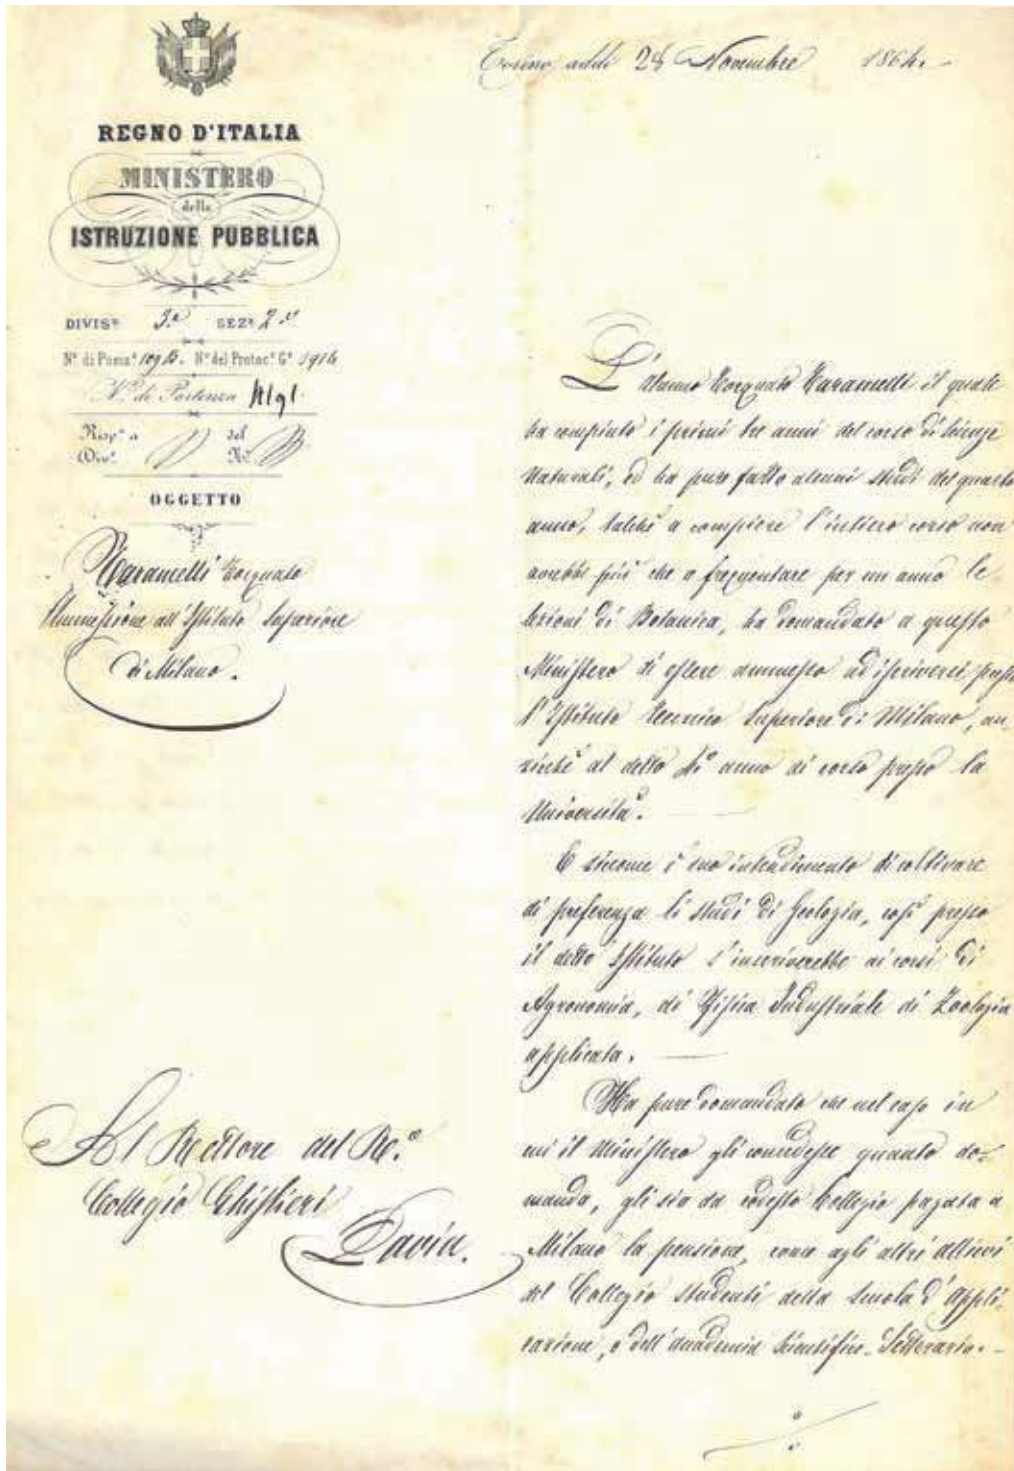 Torino addì 28 Novembre 1864.
REGNO D'ITALIA
MINISTERO
della
ISTRUZIONE PUBBLICA
DIVISe 3.a SEZe 2.a
No di Posize No del Protoco Ge 1914
No di Partenza
Rispa a del
Dive No
OGGETTO
Taramelli Torquato
Ammissione all'Istituto Superiore
di Milano.
Al Rettore del R.o
Collegio Ghislieri
Pavia.
L'alunno Torquato Taramelli il quale
ha compiuto i primi tre anni del corso di Scienze
Naturali, ed ha pure fatto alcuni studi del quarto
anno, talché a compiere l'intiero corso non
avrebbe più che a frequentare per un anno le
lezioni di Botanica, ha domandato a questo
Ministero di essere ammesso ad iscriversi presso
l'Istituto Tecnico Superiore di Milano, an-
ziché al detto 4o anno di corso presso la
Università.
E siccome è suo intendimento di coltivare
di preferenza li studi di Geologia, così presso
il detto Istituto s'inscriverebbe ai corsi di
Agronomia, di Fisica Industriale di Zoologia
applicata.
Ha pure domandato che nel caso in
cui il Ministero gli concedesse quanto do-
manda, gli sia da codesto Collegio pagata a
Milano la pensione, come agli altri allievi
del Collegio studenti della Scuola d'Appli-
cazione, o dell'Accademia Scientifico-Letteraria.